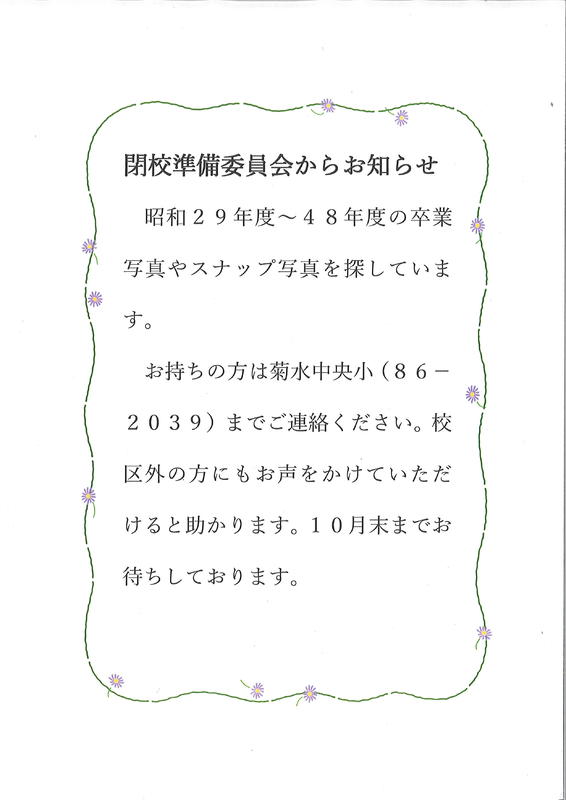 閉校準備委員会からお知らせ
　昭和２９年度～４８年度の卒業
写真やスナップ写真を探していま
す。
　お持ちの方は菊水中央小（８６－
２０３９）までご連絡ください。校
区外の方にもお声をかけていただ
けると助かります。１０月末までお
待ちしております。